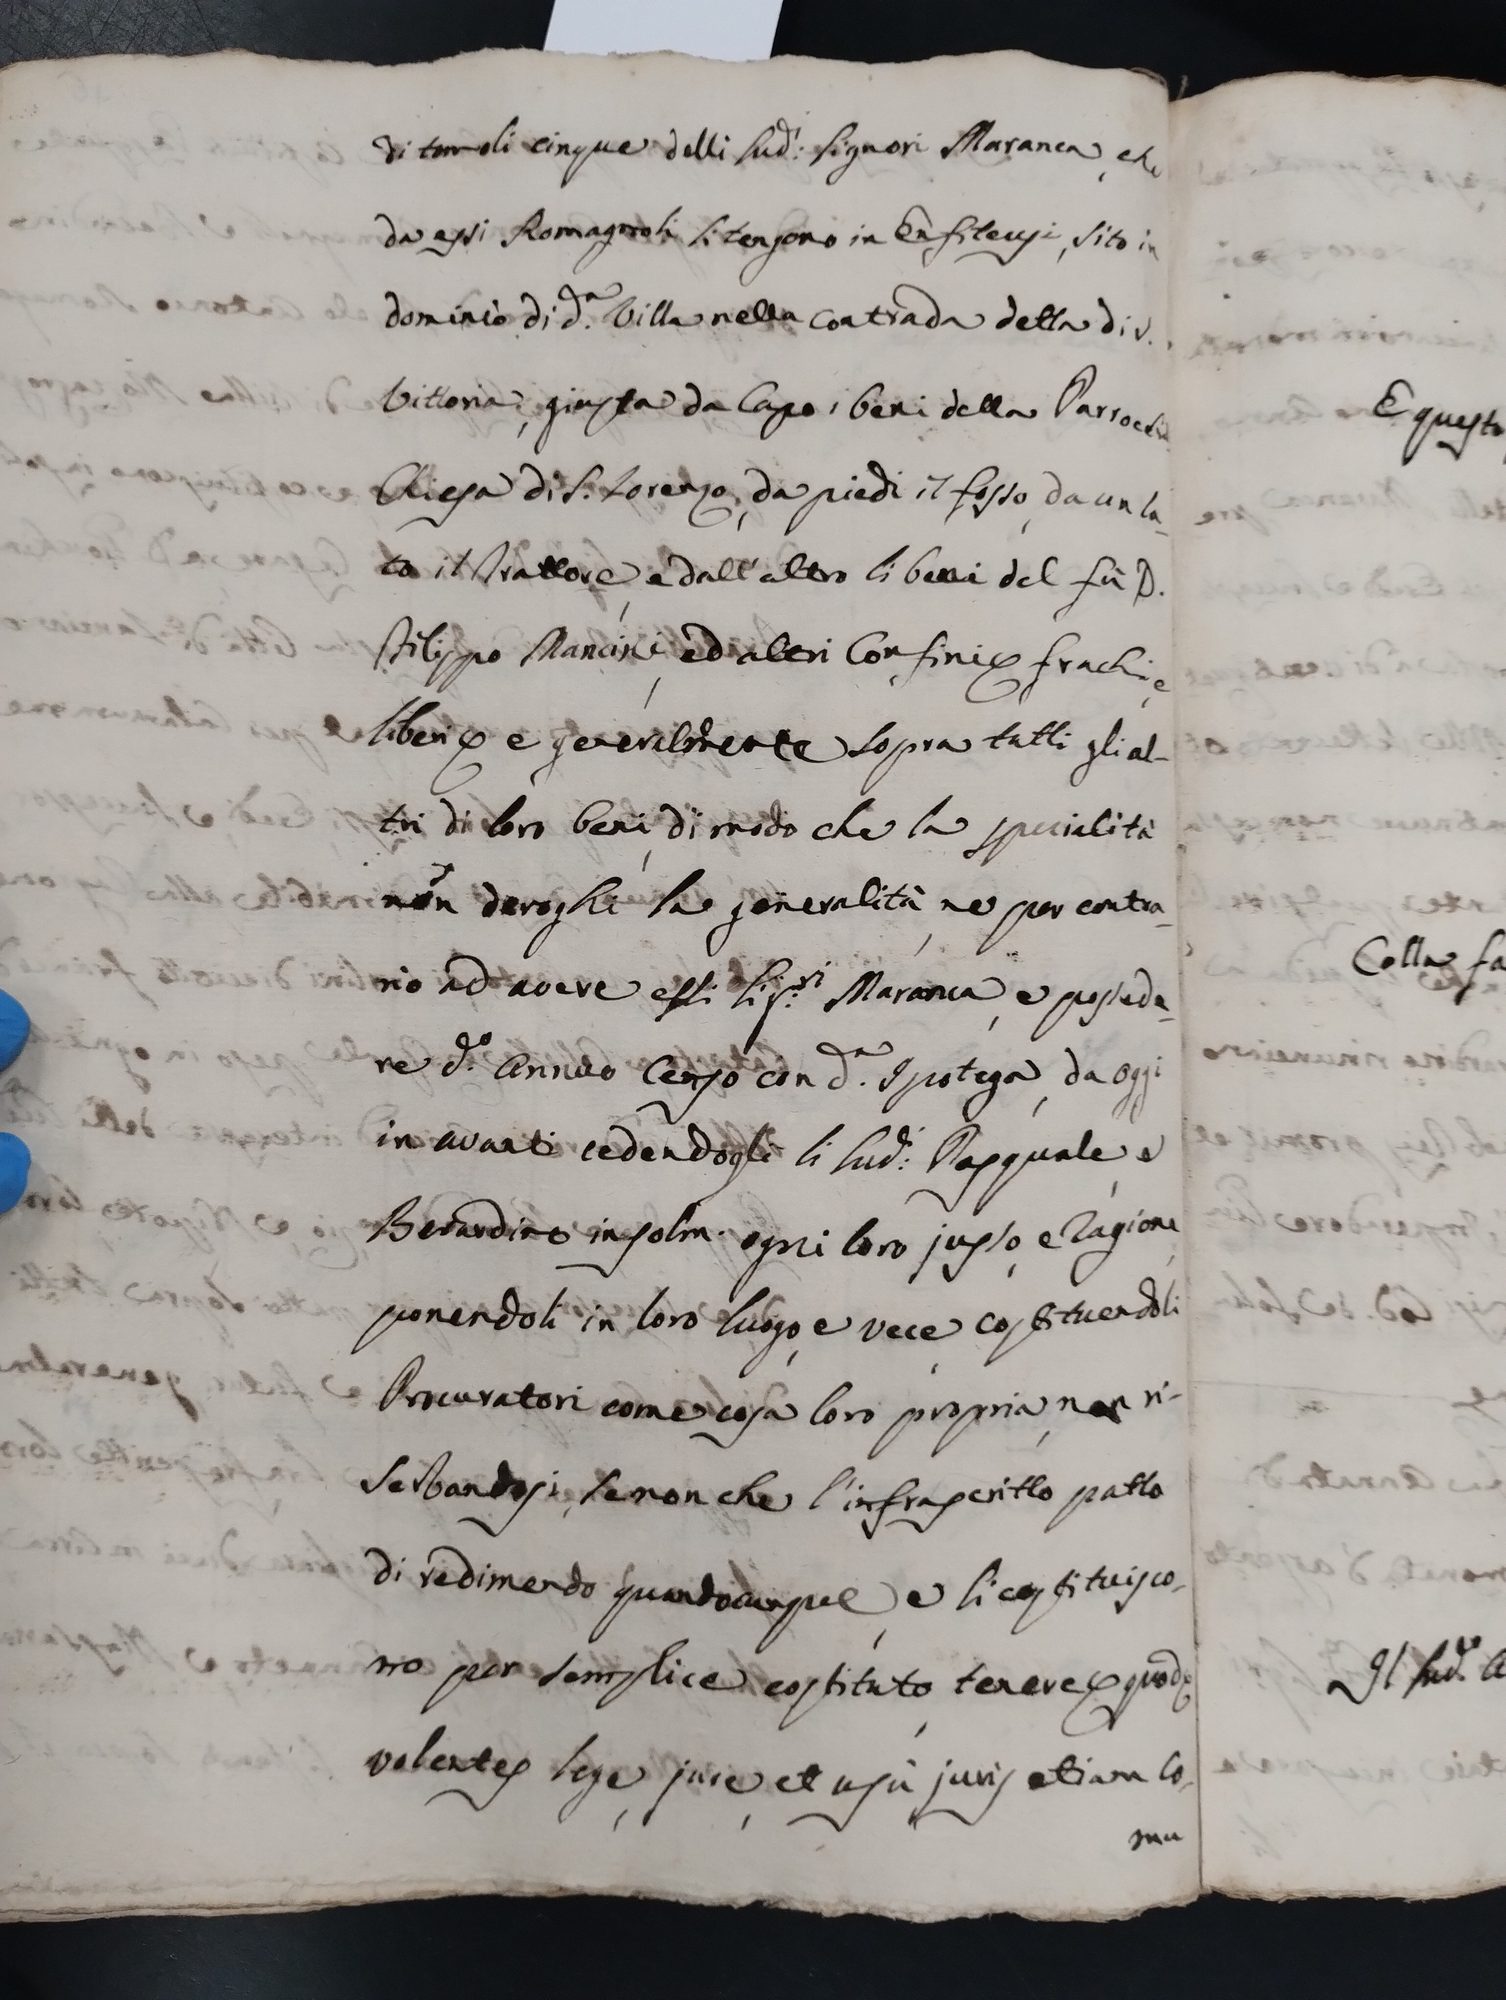 di tomoli cinque delli sud.i Signori Maranca, che
da essi Romagnoli si tengono in Enfiteusi, sito in
dominio di d.a Villa nella contrada detta di S.
Vittoria, giusta da Capo i beni della Parrochia
Chiesa di S. Lorenzo, da piedi il fosso, da un la-
to il Trattore, e dall'altro li beni del fù D.
Filippo Mancini, ed altri Confini franchi, e
liberi e generalmente sopra tutti gli al-
tri di loro beni, di modo che la specialità
non deroghi la generalità, ne per contra-
rio ad avere essi Sig.ri Maranca, e possede-
re d.o Annuo Censo con d.a Ipotega, da oggi
in avanti cedendogli li sud.i Pasquale, e
Berardino in solm. ogni loro jusso, e ragione
ponendoli in loro luogo, e vece, costituendoli
Procuratori come cosa loro propria, non ri-
serbandosi, se non che l'infrascritto patto
di redimendo quandocumque, e li costituisco-
no per semplice costituto, tenere quod
valentes lege, jure, et usù juris etiam co-
mu
E questo
Colla fa
Il sud.o A